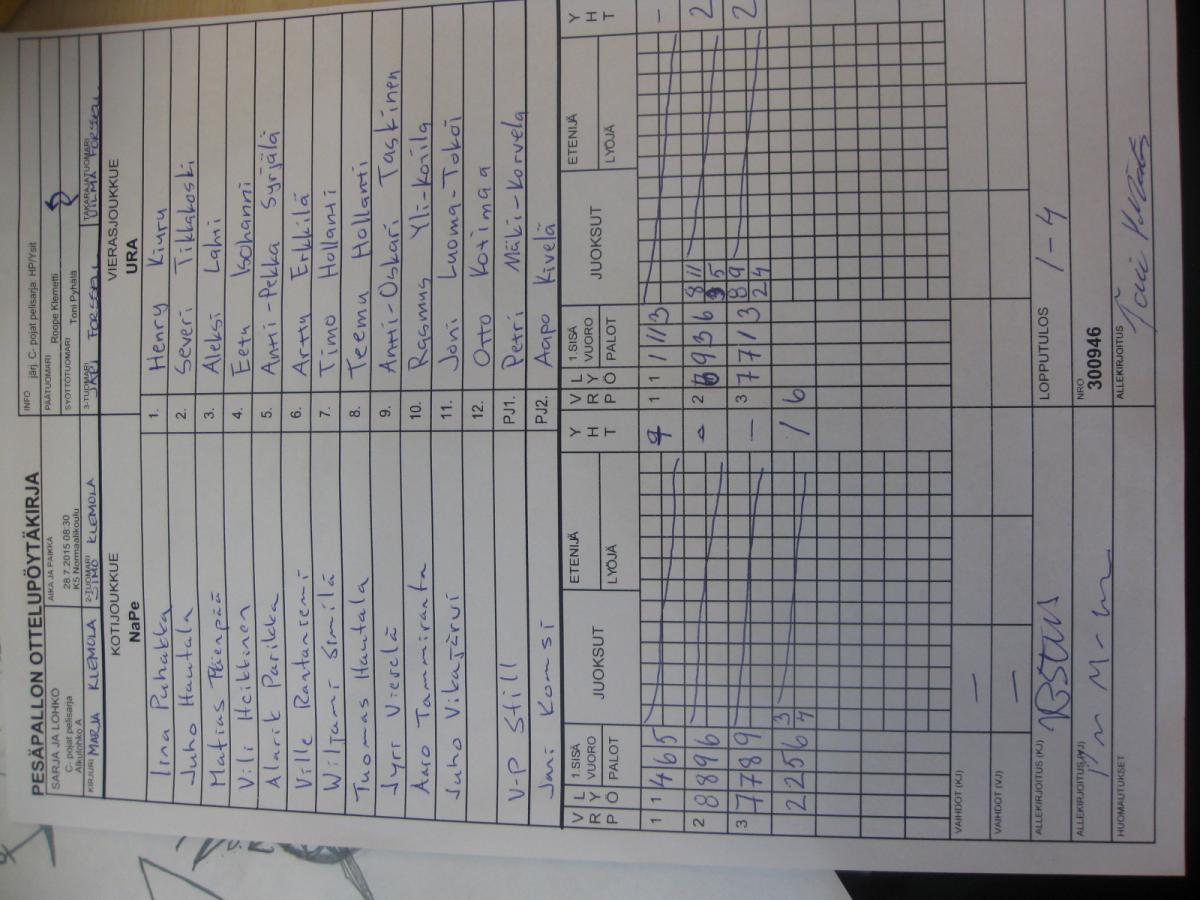 PESÄPALLON OTTELUPÖYTÄKIRJA
SARJA JA LOHKO
C- pojat pelisarja
Alkulohko A
AIKA JA PAIKKA
28.7.2015 08:30
K5 Normaalikoulu
INFO järj. C- pojat pelisarja HP/Ysit
PÄÄTUOMARI Roope Klemetti
SYÖTTÖTUOMARI Toni Pyhälä
KIRJURI MARJA KLEMOLA
2-TUOMARI SIMO KLEMOLA
3-TUOMARI JARI FORSSELL
TAKARAJATUOMARI VILMA FORSSELL
KOTIJOUKKUE
NaPe
VIERASJOUKKUE
URA
Iina Puhakka 1. Henry Kiuru
Juho Hautala 2. Severi Tikkakoski
Matias Päenpää 3. Aleksi Lahti
Vili Heikkinen 4. Eetu Isohanni
Alarik Parikka 5. Antti-Pekka Syrjälä
Ville Rantaniemi 6. Arttu Erkkilä
Wiljami Similä 7. Timo Hollanti
Tuomas Hautala 8. Teemu Hollanti
Jyri Vierelä 9. Antti-Oskari Taskinen
Aaro Tammiranta 10. Rasmus Yli-Korila
Juho Vikajärvi 11. Joni Luoma-Tokoi
12. Otto Kotimaa
V-P Still PJ1. Petri Mäki-Korvela
Jani Komsi PJ2. Aapo Kivelä
V R Ö L Y P 1.SISÄ VUORO PALOT JUOKSUT ETENIJÄ LYÖJÄ Y H T V R Ö L Y P 1.SISÄ VUORO PALOT JUOKSUT ETENIJÄ LYÖJÄ Y H T
1 1 4 6 5 1 1 1 11 3 -
2 8 8 8 9 6 2 6 9 3 6 8 11 5 2
3 7 7 7 8 9 - 3 7 7 1 3 8 9 2 4 2
2 2 5 6 3 4 1 6
VAIHDOT (KJ) -
VAIHDOT (VJ) -
ALLEKIRJOITUS (KJ)
LOPPUTULOS 1-4
ALLEKIRJOITUS (VJ)
NRO
300946
HUOMAUTUKSET
ALLEKIRJOITUS